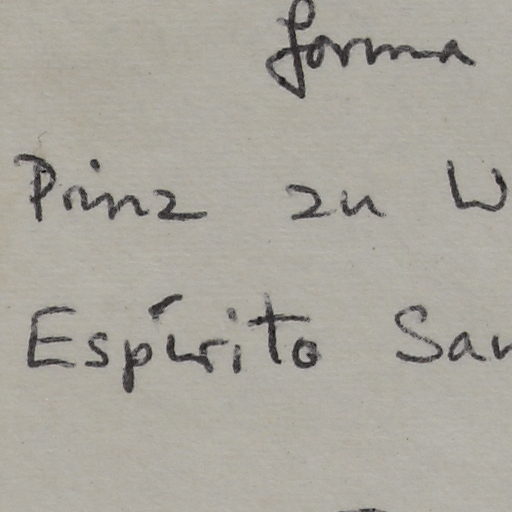 forma
Prinz zu W
Espírito San